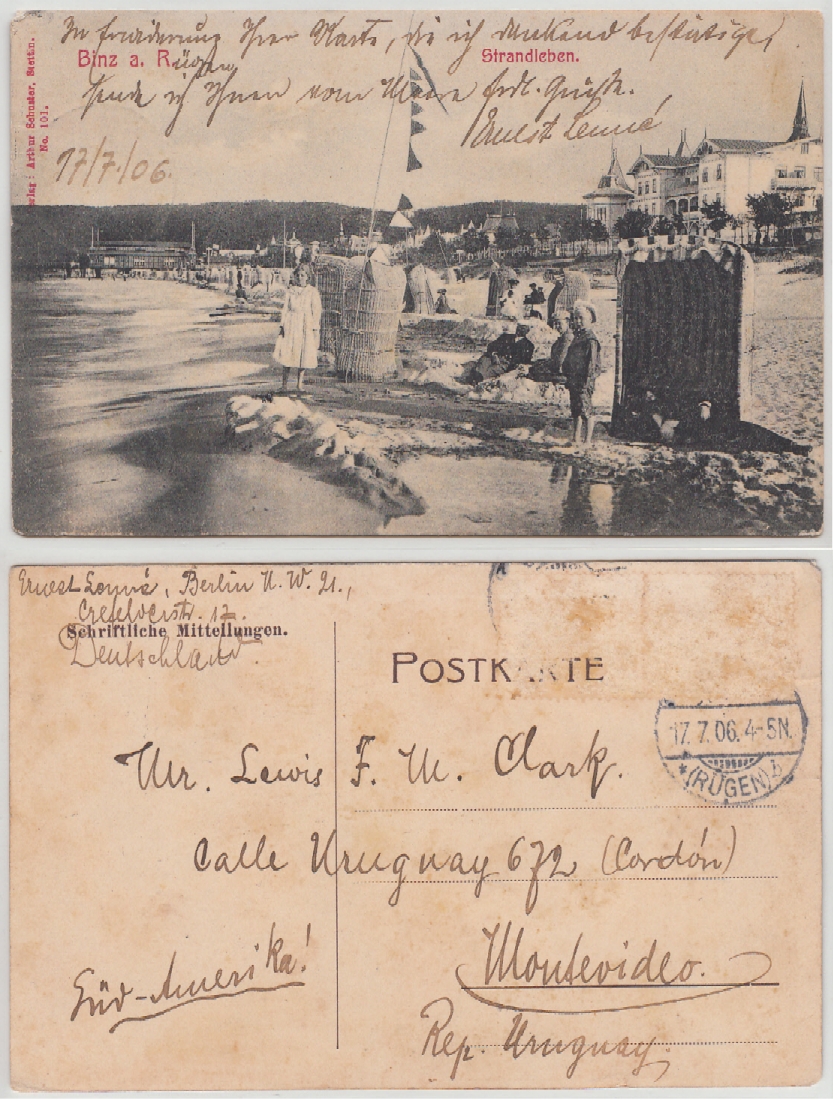 In Erwiderung Ihrer Karte, die ich dankend bestätige,
Binz a. Rügen
Strandleben.
sende ich Ihnen vom Meere frdl. Grüße.
Ernest Lenné
17/7/06.
Verlag: Arthur Schuster, Stettin.
No. 101.
Ernest Lenné, Berlin N.W. 21.,
Crefelderstr. 17.
Schriftliche Mitteilungen.
Deutschland.
POSTKARTE
17. 7. 06. 4-5N.
*(RÜGEN) b
Mr. Lewis F. M. Clark.
Calle Uruguay 672 (Cordón)
Montevideo.
Süd-Amerika!
Rep. Uruguay.